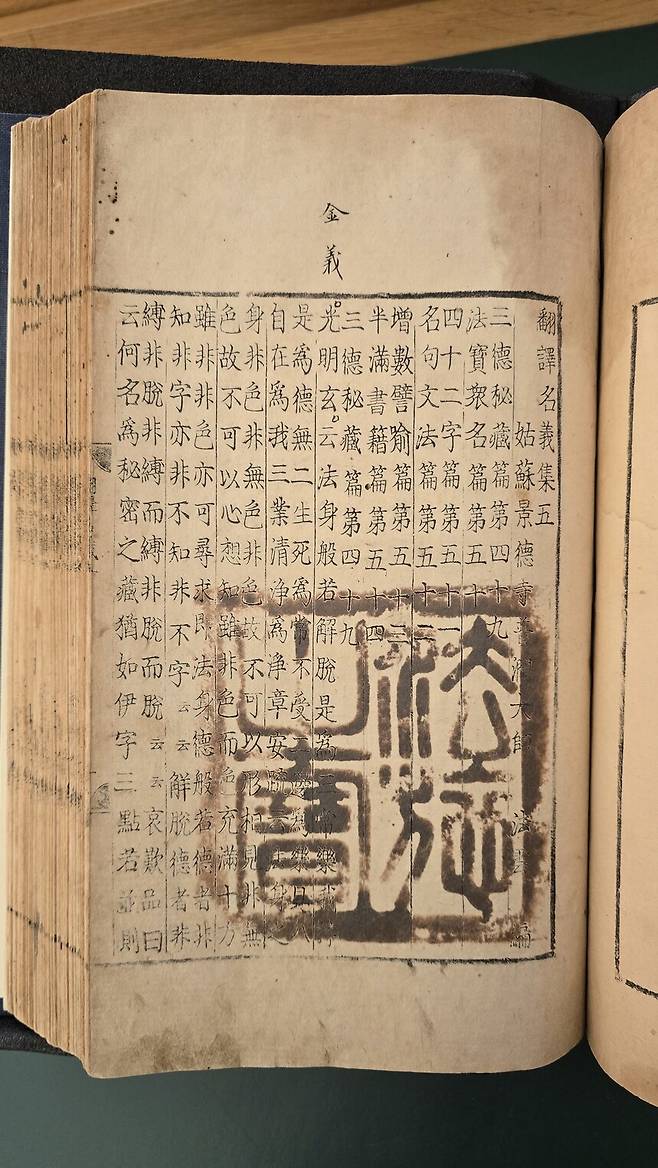 金義
翻譯名義集五
姑蘇景德寺普潤大師 法雲 編
三德秘藏篇第四十九
法寶衆名篇第五十
四十二字篇第五十一
名句文法篇第五十二
增數譬喻篇第五十三
半滿書籍篇第五十四
三德秘藏篇第四十九
光明玄云法身般若解脫是爲三常樂我淨
是爲德無二生死爲常不受二邊爲樂具八
自在爲我三業清淨爲淨章安疏云法身之
身非色非無色非色故不可以形相見非無
色故不可以心想知雖非色而色充滿十方
雖非非色亦可尋求即法身德般若德者非
知非字亦非不知非不字云云解脫德者非
縛非脫非縛而縛非脫而脫云云哀歎品曰
云何名爲秘密之藏猶如伊字三點若並則